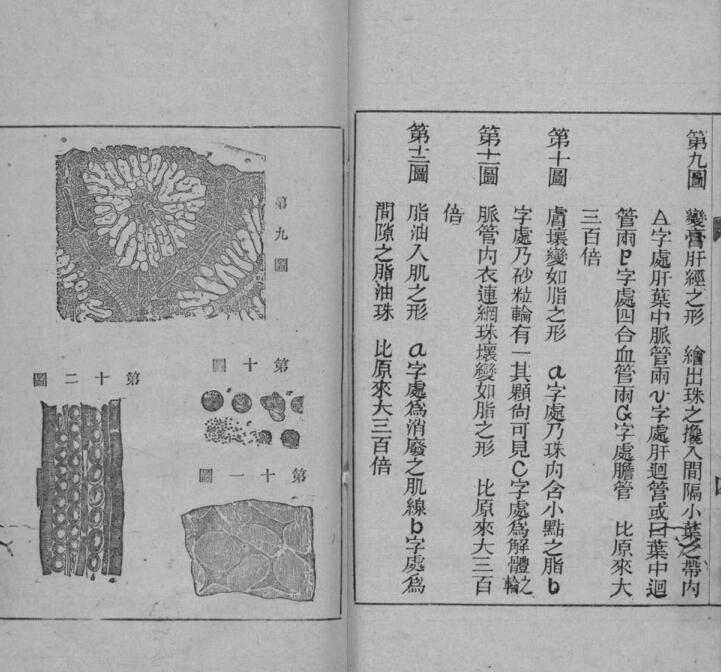 第九圖 變膏肝經之形 繪出珠之攙入間隔小葉之帶內
A字處肝葉中脈管兩v字處肝迴管或曰葉中迴
管兩P字處四合血管兩G字處膽管 比原來大
三百倍
第十圖 膚壞變如脂之形 a字處乃珠內含小點之脂b
字處乃砂粒輪有一其顆尙可見C字處爲解體輪之
第十一圖 脈管內衣連網珠壞變如脂之形 比原來大三百
倍
第十二圖 脂油入肌之形 a字處爲消廢之肌線b字處爲
間隙之脂油珠 比原來大三百倍
第九圖
第十圖
第十一圖
第十二圖